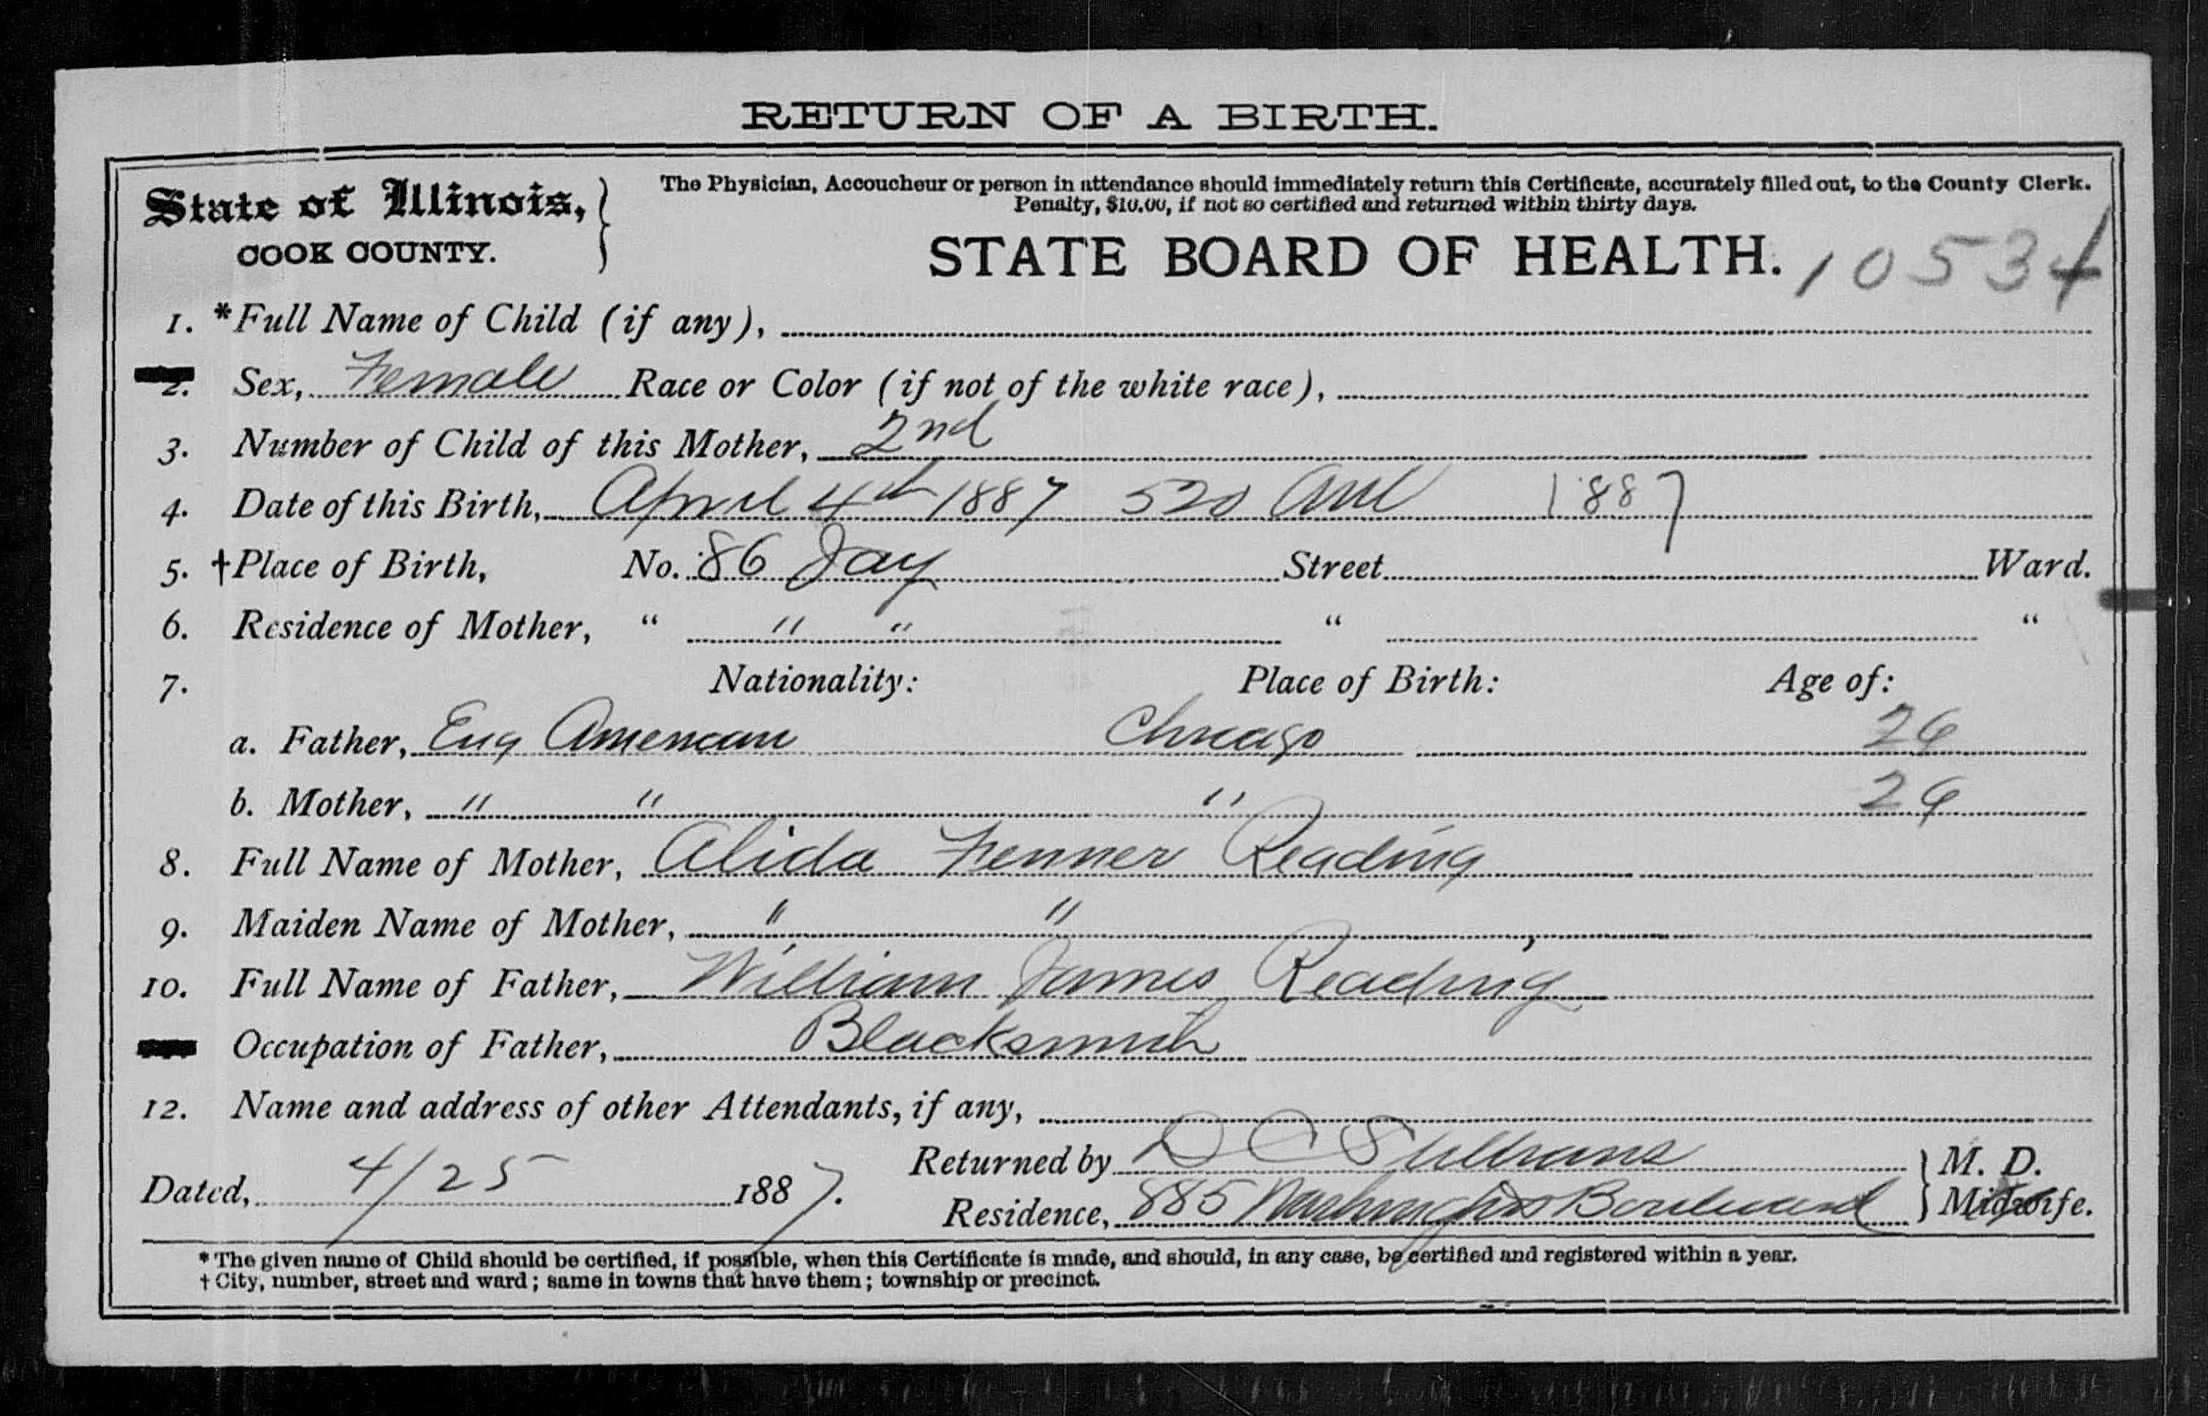 RETURN OF A BIRTH.
State of Illinois,
COOK COUNTY.
The Physician, Accoucheur or person in attendance should immediately return this Certificate, accurately filled out, to the County Clerk.
Penalty, $10.00, if not so certified and returned within thirty days.
STATE BOARD OF HEALTH. 10534
1. *Full Name of Child (if any),
2. Sex, Female Race or Color (if not of the white race),
3. Number of Child of this Mother, 2nd
4. Date of this Birth, April 4th 1887 520 1887
5. †Place of Birth, No. 86 Jay Street Ward.
6. Residence of Mother, " " " " "
7. Nationality: Place of Birth: Age of:
a. Father, Eng American Chicago 26
b. Mother, " " " 26
8. Full Name of Mother, Alida Fenner Reading
9. Maiden Name of Mother, " "
10. Full Name of Father, William James Reading
Occupation of Father, Blacksmith
12. Name and address of other Attendants, if any,
Returned by D C M. D.
Dated, 4/25 1887.
Residence, 885 Washington Boulevard Midwife.
* The given name of Child should be certified, if possible, when this Certificate is made, and should, in any case, be certified and registered within a year.
† City, number, street and ward; same in towns that have them; township or precinct.